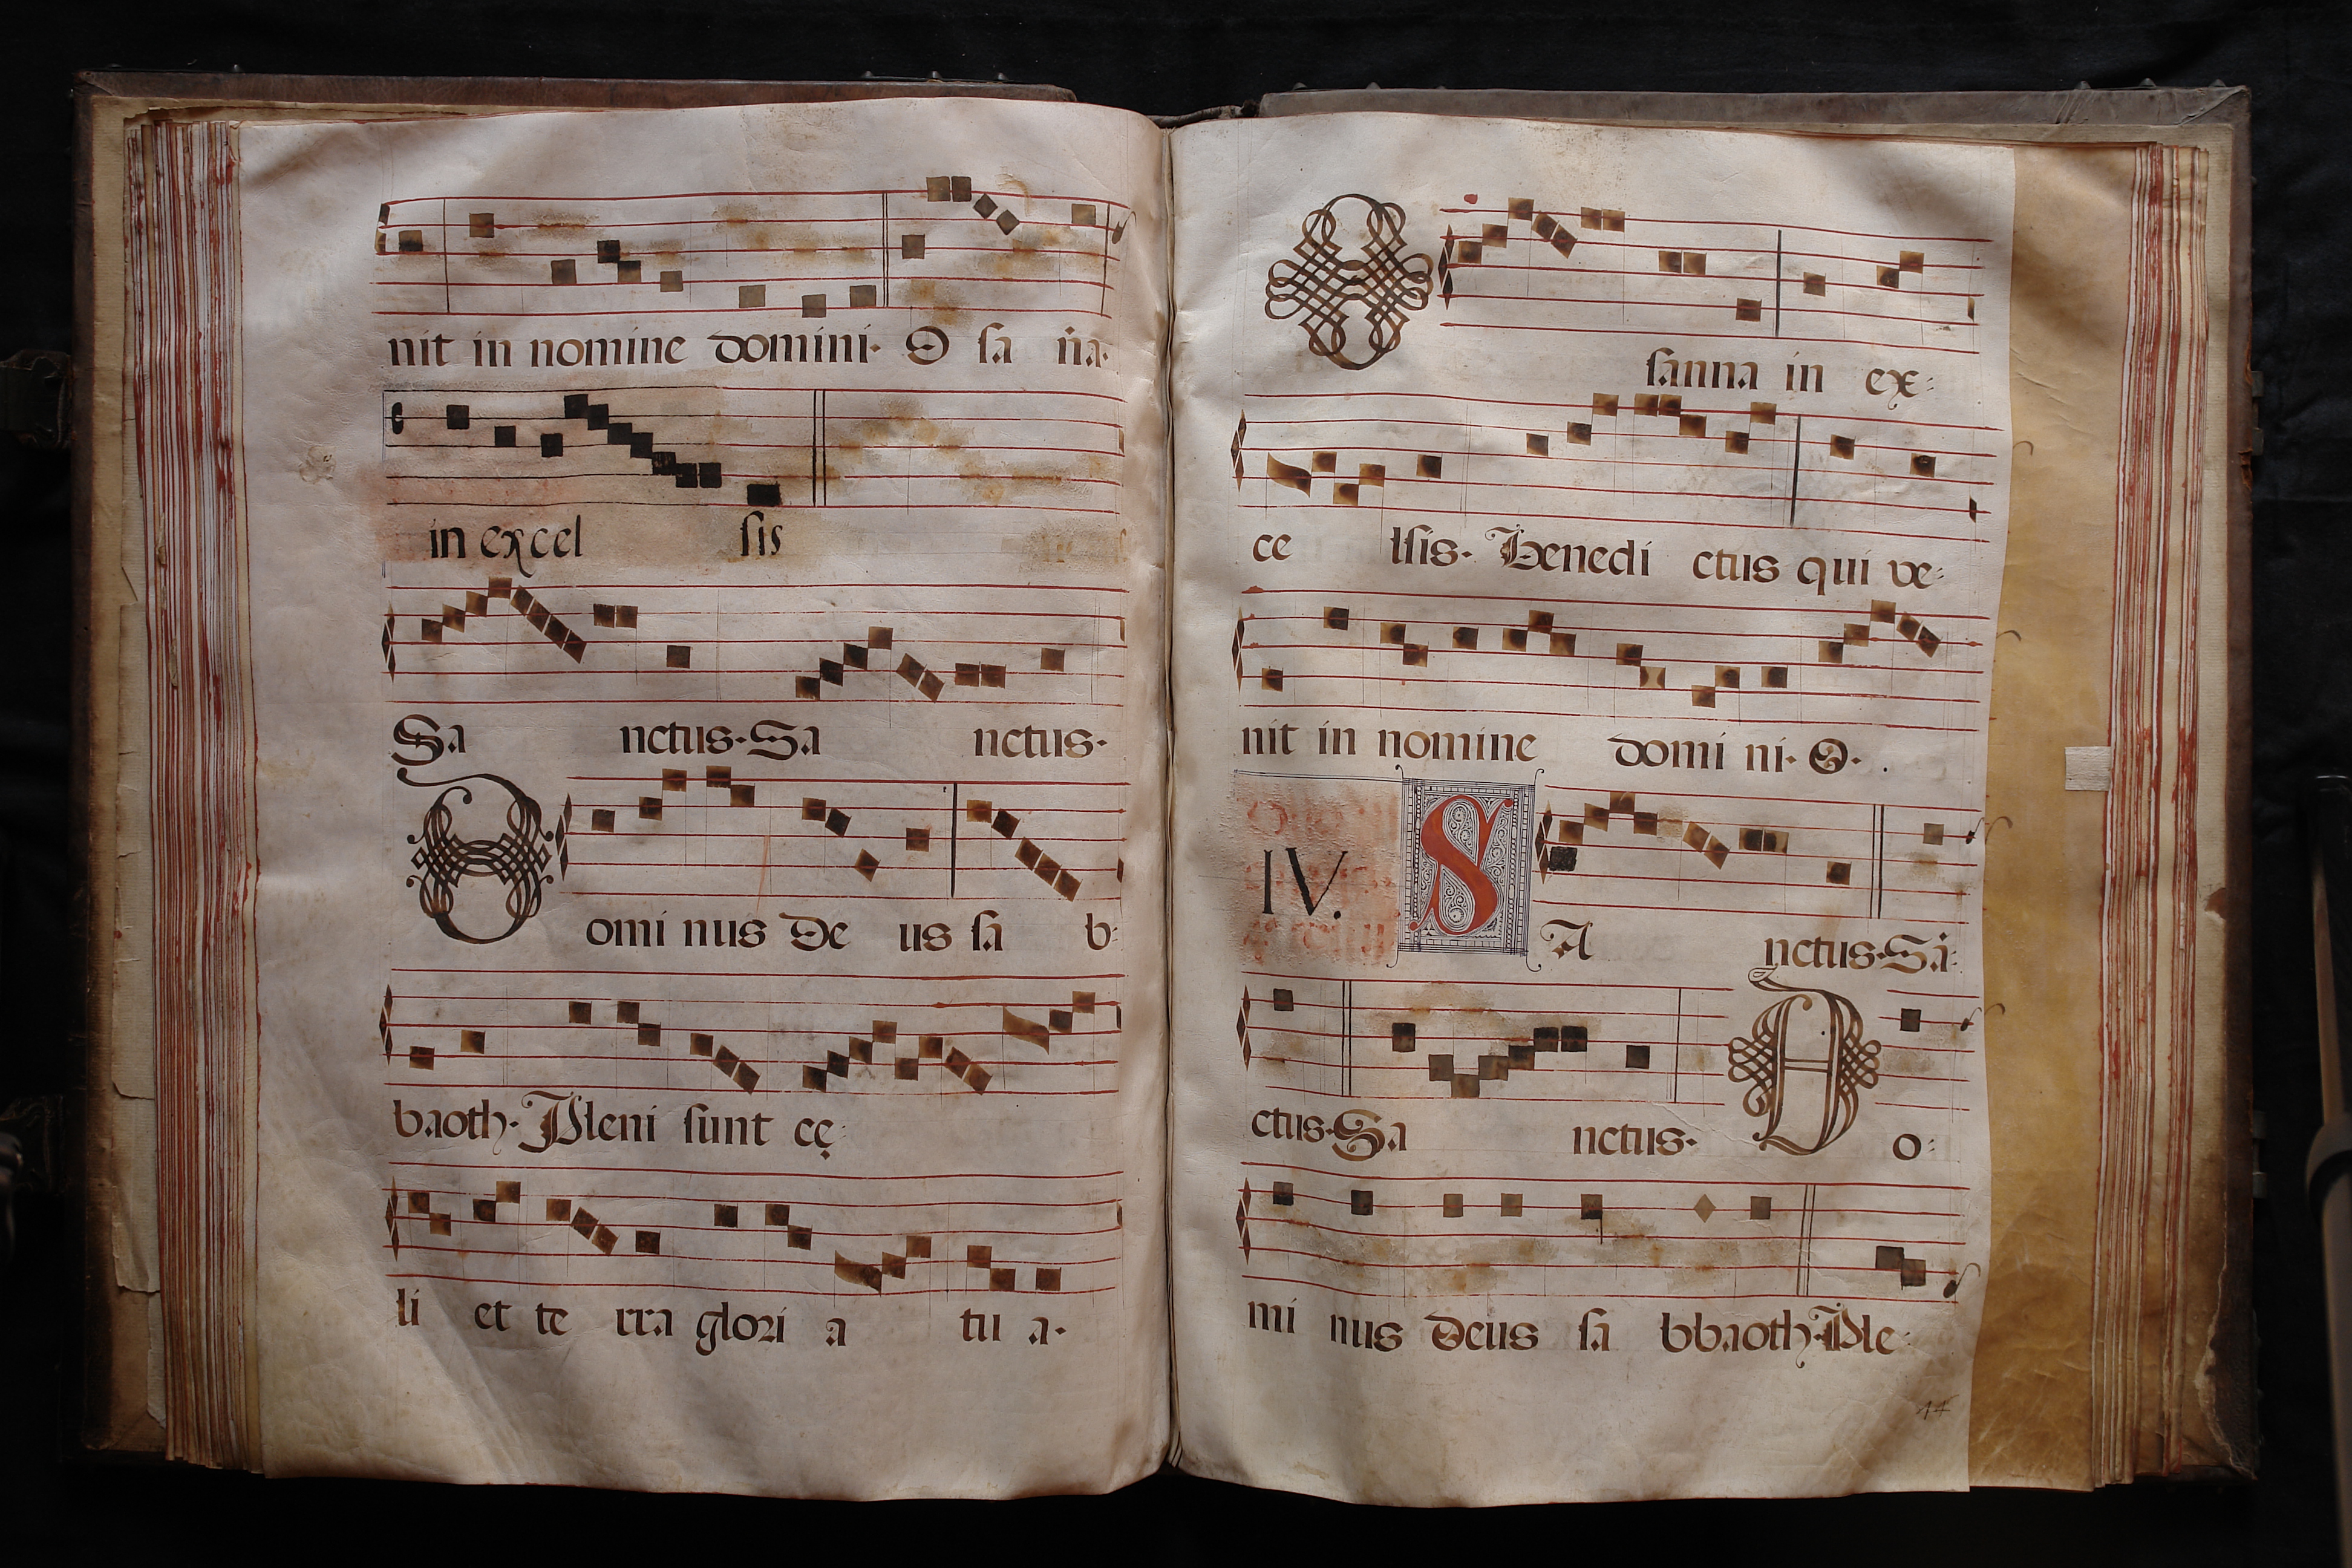 nit in nomine domini· O sa n̄a·
in excel sis
Sa nctus· Sa nctus·
Domi nus De us sa b:
baoth· Pleni sunt cę:
li et te rra glori a tu a·
Osanna in ex:
ce lsis· Benedi ctus qui ve:
nit in nomine domi ni· O·
IV. SA nctus· Sā:
ctus· Sa nctus· Do:
mi nus Deus sa bbaoth· Ple: